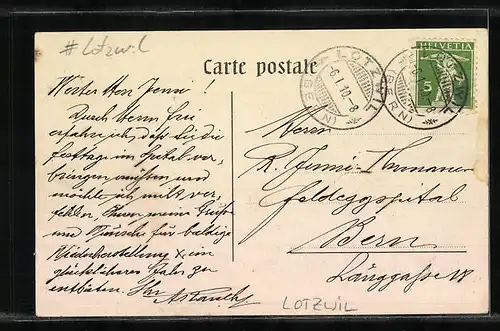 # Lotzwil
Carte postale
HELVETIA
5
LOTZWIL
(BERN)
-6.I.10-8
LOTZWIL
(BERN)
Werter Herr Jenni!
Durch Ihre Frl
erfahre ich, daß Sie die
Festtage im Spital ver-
bringen müssen und
möchte ich nicht ver-
fehlen, Ihnen meine Grüße
und Wünsche für baldige
Wiederherstellung & ein
glückliches Jahr zu
entbieten. Ihr
Herrn
R. Jenni-
Feldeggspital
Bern
Länggasse 18
LOTZWIL